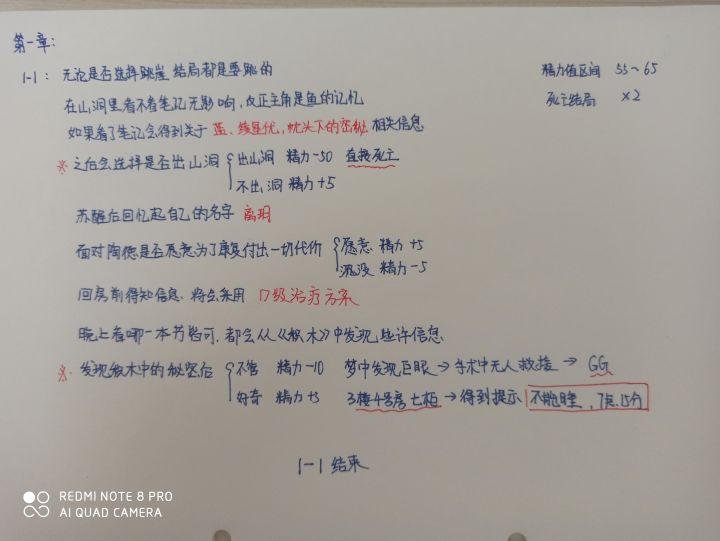 第一章:
1-1: 无论是否选择跳崖 结局都是要跳的
精力值区间 55~65
在山洞里看不看笔记无影响,反正主角是鱼的记忆
死亡结局 ×2
如果看了笔记会得到关于 蓝、续星代、枕头下的密秘 相关信息
※ 之后会选择是否出山洞 { 出山洞 精力-50 直接死亡
不出洞 精力+5
苏醒后回忆起自己的名字 离玥
面对陶德是否愿意为了康复付出一切代价 { 愿意 精力+5
沉没 精力-5
回房前得知信息 将会采用 17级治疗方案
晚上看哪一本书皆可,都会从《积木》中发现些许信息
※. 发现积木中的秘密后 { 不管 精力-10 梦中发现巨眼→手术中无人救援→ GG
好奇 精力+5 3楼4号房七栢→得到提示 不能睡,7点15分
1-1 结束
REDMI NOTE 8 PRO
AI QUAD CAMERA